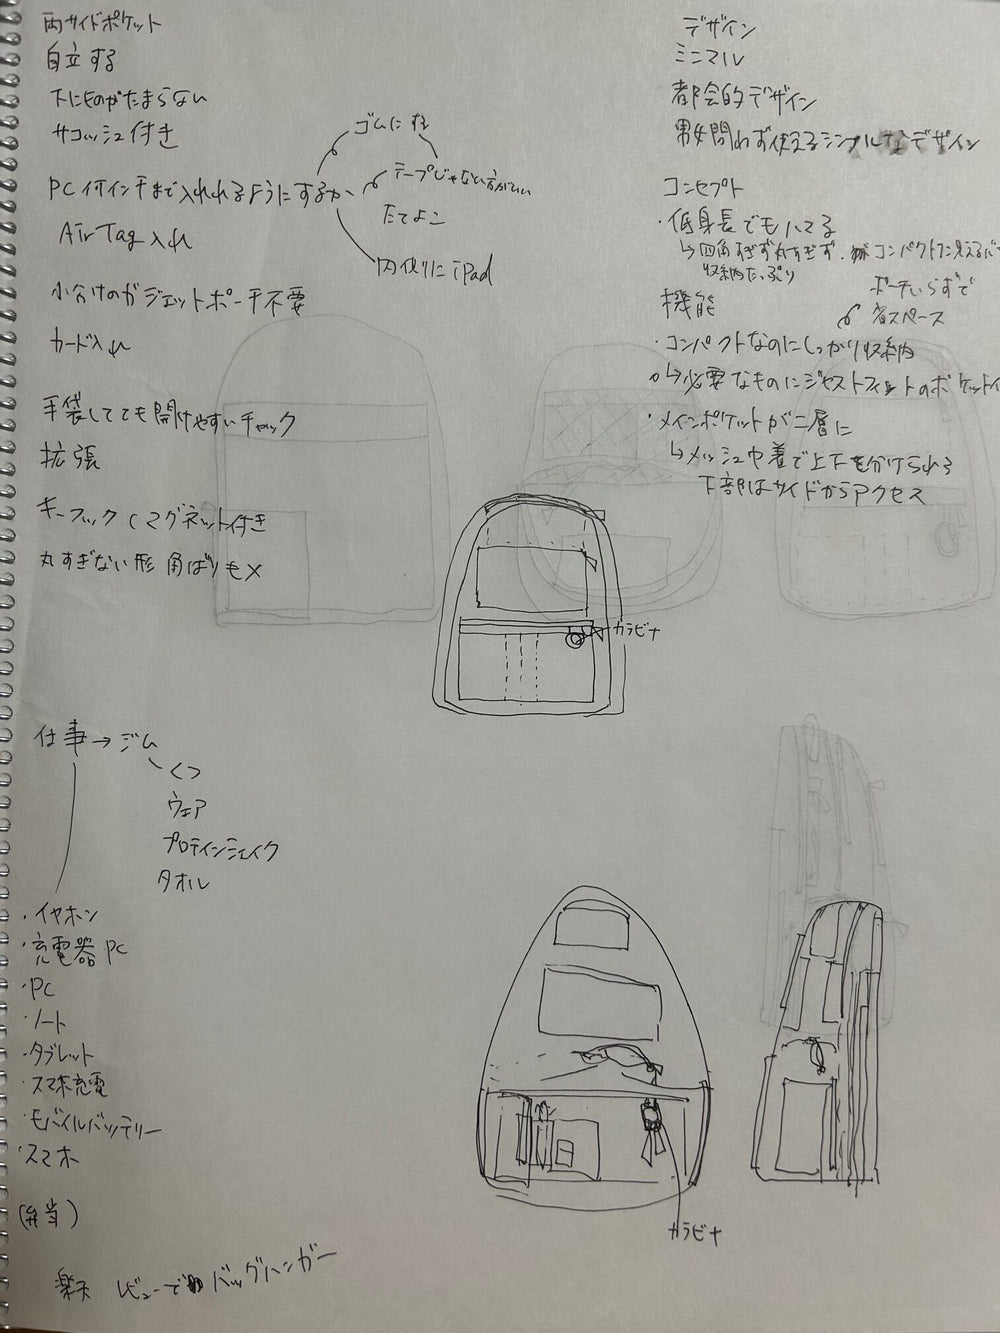 両サイドポケット
自立する
下にものがたまらない
サコッシュ付き
ゴムにする
PC 付インチまで入れれるようにするか、
テープじゃない方がいい
たてよこ
内側りに iPad
AirTag 入れ
小分けのガジェットポーチ不要
カード入れ
手袋してても開けやすいチャック
拡張
キーフック (マグネット付き
丸すぎない形 角ばりも×
デザイン
ミニマル
都会的デザイン
男女問わず使えるシンプルなデザイン
コンセプト
・低身長でもハマる
↳四角すぎず丸すぎず、コンパクトに見えるが
収納たっぷり
ポーチいらずで
省スペース
機能
・コンパクトなのにしっかり収納
↳必要なものにジャストフィットのポケット
・メインポケットが二層に
↳メッシュ巾着で上下を分けられる
下部はサイドからアクセス
カラビナ
仕事→ジム
くつ
ウェア
プロテインシェイク
タオル
・イヤホン
・充電器 PC
・PC
・ノート
・タブレット
・スマホ充電
・モバイルバッテリー
・スマホ
(弁当)
カラビナ
楽天 レビューで バッグハンガー